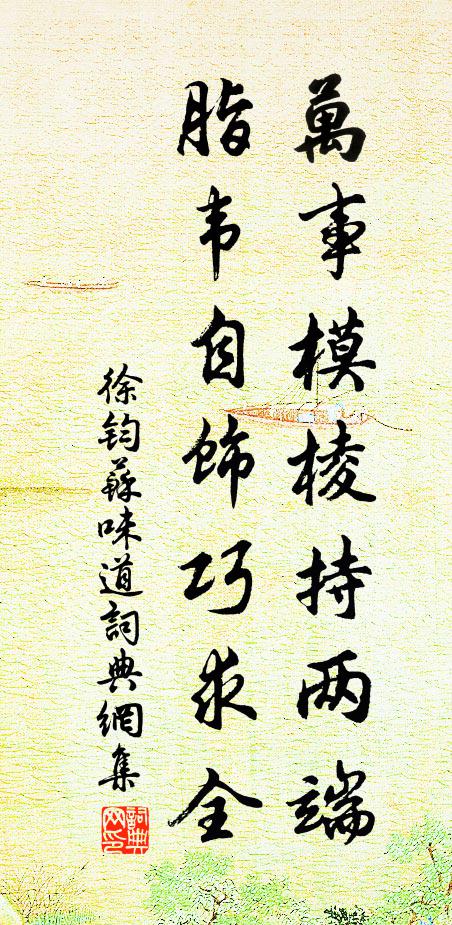 萬事模棱持两端
脂韦自飾巧求全
徐鈞蘇味道詞典網集
詞典网印